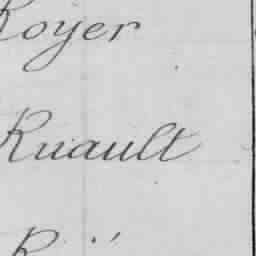 Royer
Ruault